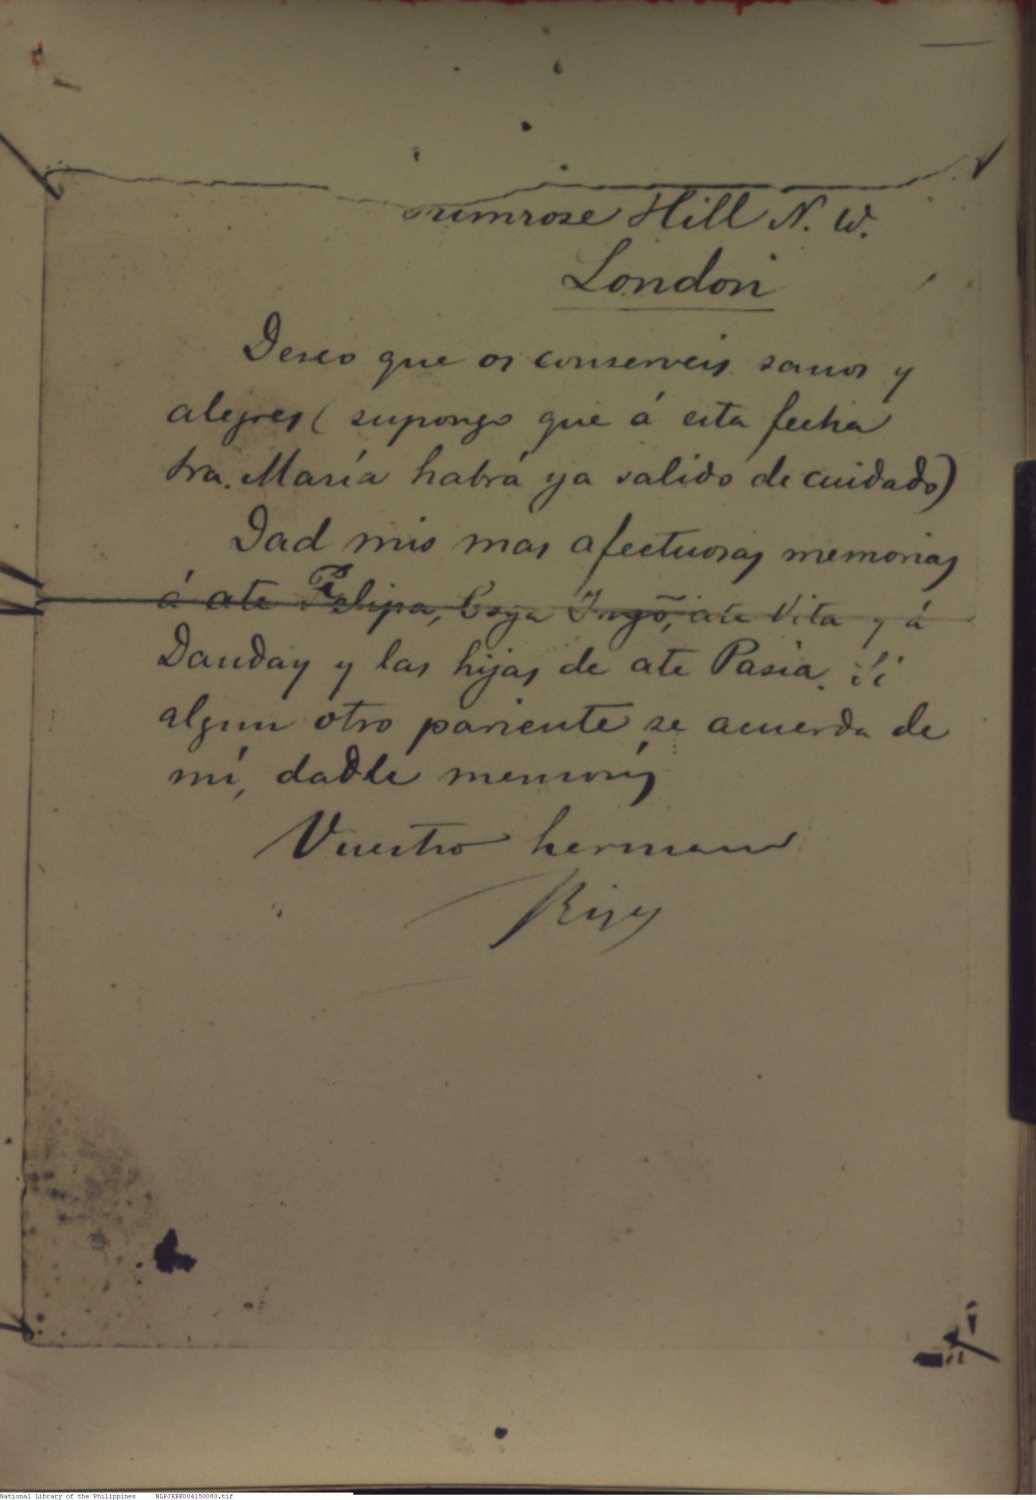 Primrose Hill N. W.
London
Deseo que os conserveis sanos y
alegres (supongo que á esta fecha
Sra. María habrá ya salido de cuidado)
Dad mis mas afectuosas memorias
á ate Felipa, Coya Ingõ, ate Vita y á
Danday y las hijas de ate Pasia. Si
algun otro pariente se acuerda de
mí, dadle memorias
Vuestro hermano
Rizal
National Library of the Philippines